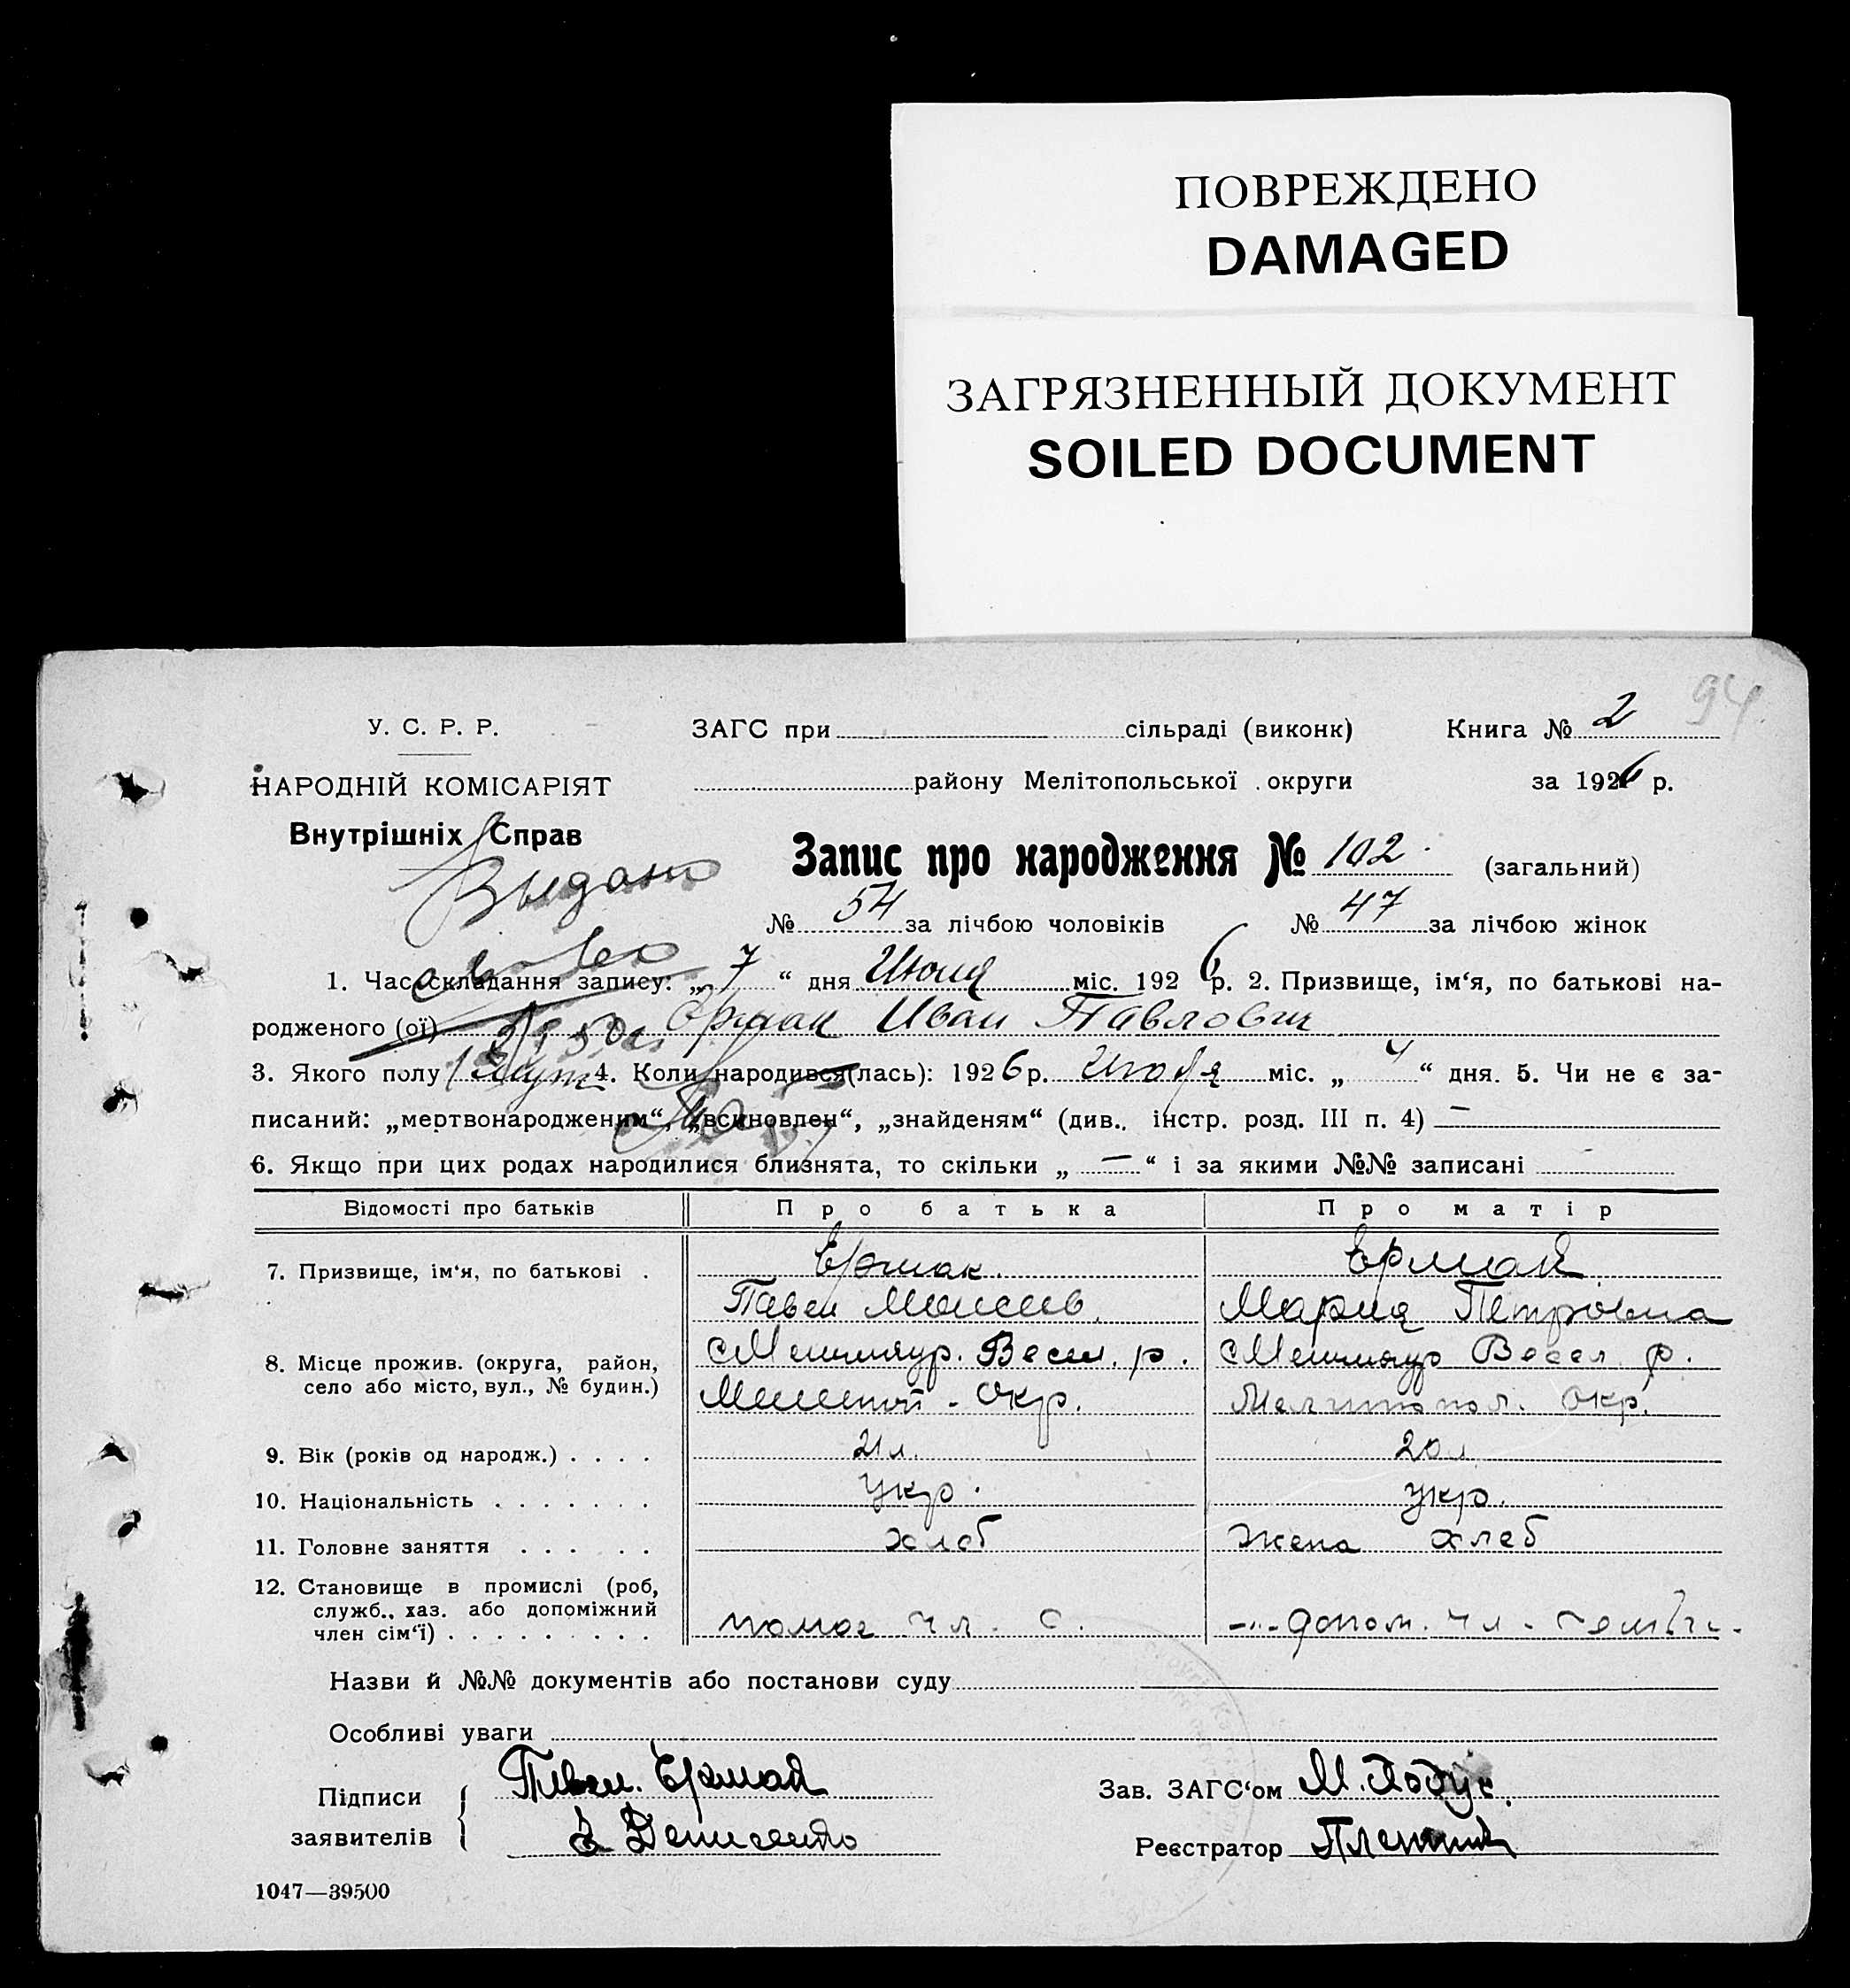 ПОВРЕЖДЕНО
DAMAGED
ЗАГРЯЗНЕННЫЙ ДОКУМЕНТ
SOILED DOCUMENT
94
У. С. Р. Р.
ЗАГС при сільраді (виконк) Книга № 2
НАРОДНІЙ КОМІСАРІЯТ
району Мелітопольської округи за 1926 р.
Внутрішніх Справ
Запис про народження № 102 (загальний)
№ 54 за лічбою чоловіків № 47 за лічбою жінок
1. Час складання запису: „ 7 “ дня Июня міс. 1926 р. 2. Призвище, ім‘я, по батькові на-
родженого (ої) Ермак Иван Павлович
3. Якого полу 4. Коли народився(лась): 1926 р. міс. „ 4 “ дня. 5. Чи не є за-
писаний: „мертвонародженим“, „всиновлен“, „знайденям“ (див.. інстр. розд. III п. 4) —
6. Якщо при цих родах народилися близнята, то скільки „ — “ і за якими №№ записані
Відомості про батьків Про батька Про матір
7. Призвище, ім‘я, по батькові . Ермак. Ермак
Павел Моисеев. Мария Петровна
8. Місце прожив. (округа, район, Весел. р. Весел. р.
село або місто, вул., № будин.) Окр. Мелитопол. Окр.
9. Вік (років од народж.) . . . . 21 л. 20 л
10. Національність . . . . . . . укр. укр.
11. Головне заняття . . . . . хлеб Жена хлеб
12. Становище в промислі (роб,
служб.. хаз. або допоміжний
член сім‘ї) . . . . . . . . . помог чл. с. допом. чл.
Назви й №№ документів або постанови суду
Особливі уваги
Підписи Павел. Ермак Зав. ЗАГС‘ом М.
заявителів Денисенко Реєстратор
1047—39500